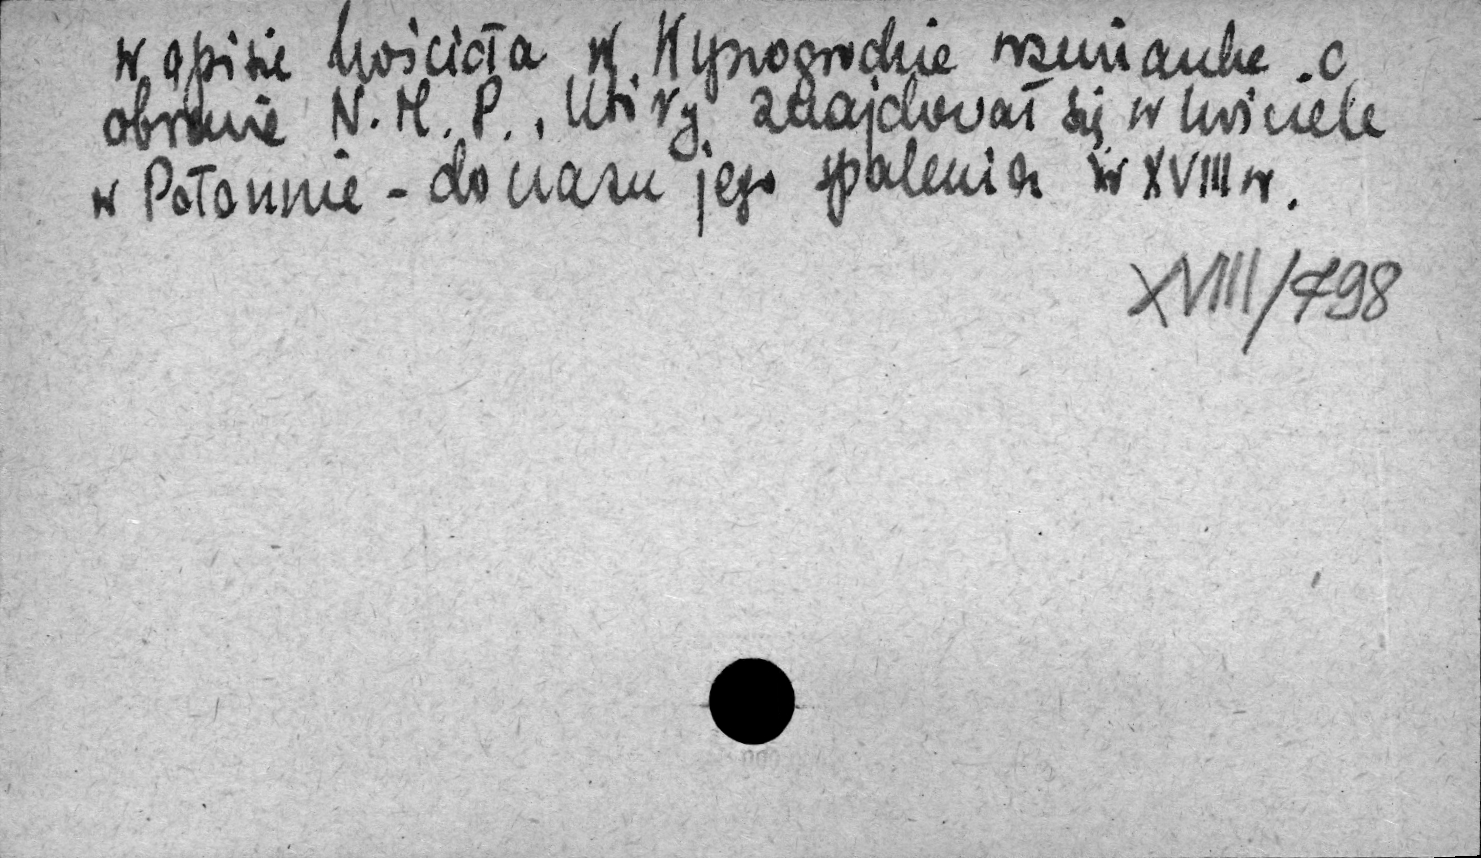 w opisie kościoła w Wyszogrodzie wzmianka o
obrazie N.M.P., który znajdował się w kościele
w Połonnie - do czasu jego spalenia w XVIII w.
XVIII/498